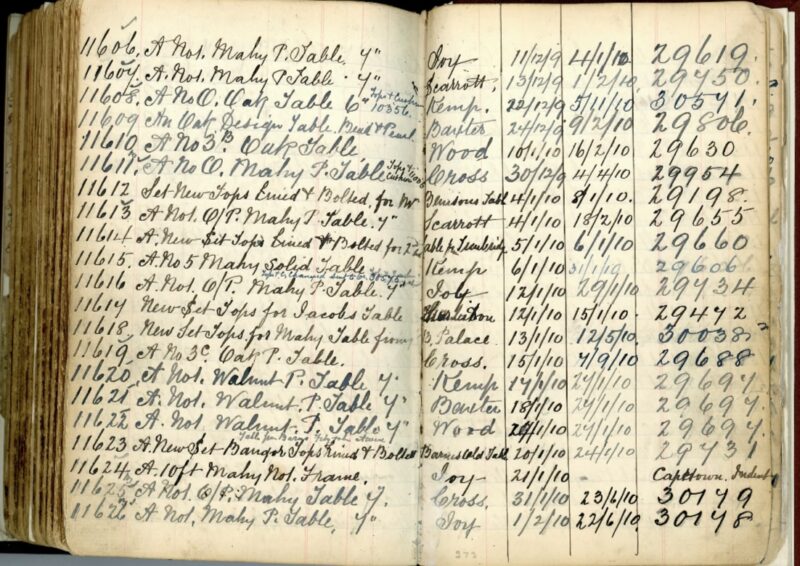 11606. A No1. Mahy P. Table. 7" Joy 11/12/9 4/1/10 29619.
11607. A. No1. Mahy P Table. 7" Scarrott, 13/12/9 1/2/10 29750.
11608. A No O. Oak Table 6" Tops & Cushions 10356. Kemp. 22/12/9 5/11/10 30571.
11609 An Oak Design Table. Bend & Pearl Baxter 24/12/9 9/2/10 29806.
11610 A No 3B Oak Table Wood 10/1/10 16/2/10 29630
11611. A No O. Mahy P. Table Cross 30/12/9 4/4/10 29954
11612 Set New Tops Lined & Bolted for Mr Denisons Tabl 4/1/10 8/1/10. 29198.
11613 A No1. O/P. Mahy P. Table. 7" Scarrott 4/1/10 18/2/10 29655
11614 A. New Set Tops Lined & Bolted for 5/1/10 6/1/10 29660
11615. A No 5 Mahy Solid Table Kemp 6/1/10 31/1/10 29606
11616 A No1. O/P. Mahy P. Table. 7" Joy 12/1/10 29/1/10 29734
11617 New Set Tops for Jacobs Table 12/1/10 15/1/10. 29472
11618. New Set Tops for Mahy Table from B. Palace. 13/1/10 12/5/10. 30038
11619. A No 3C. Oak P. Table. Cross. 15/1/10 7/9/10 29688
11620. A No1. Walnut P. Table 7. Kemp 17/1/10 27/1/10 29697.
11621 A No1. Walnut. P. Table 7" Baxter 18/1/10 27/1/10 29697.
11622 A. No1. Walnut. P. Table 7" Wood 20/1/10 27/1/10 29697.
11623 A. New Set Bangor Tops Lined & Bolted Barnes Old Tabl 20/1/10 24/1/10 29731
11624. A. 10ft Mahy No1. Frame. Joy 21/1/10 Capetown. Indent
11625 A No1. O/P. Mahy Table 7. Cross. 31/1/10 23/6/10 30179
11626 A No1. Mahy P. Table, 7" Joy 1/2/10 22/6/10. 30178
273